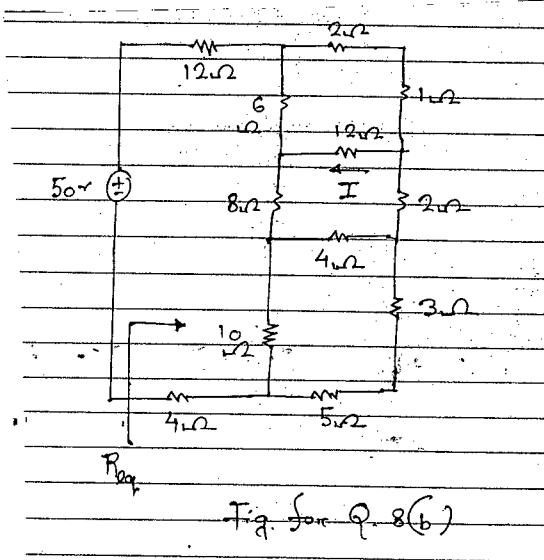 2Ω
12Ω
6
Ω
1Ω
12Ω
I
50v
8Ω
2Ω
4Ω
3Ω
10
Ω
4Ω
5Ω
Req
Fig. for Q. 8(b)